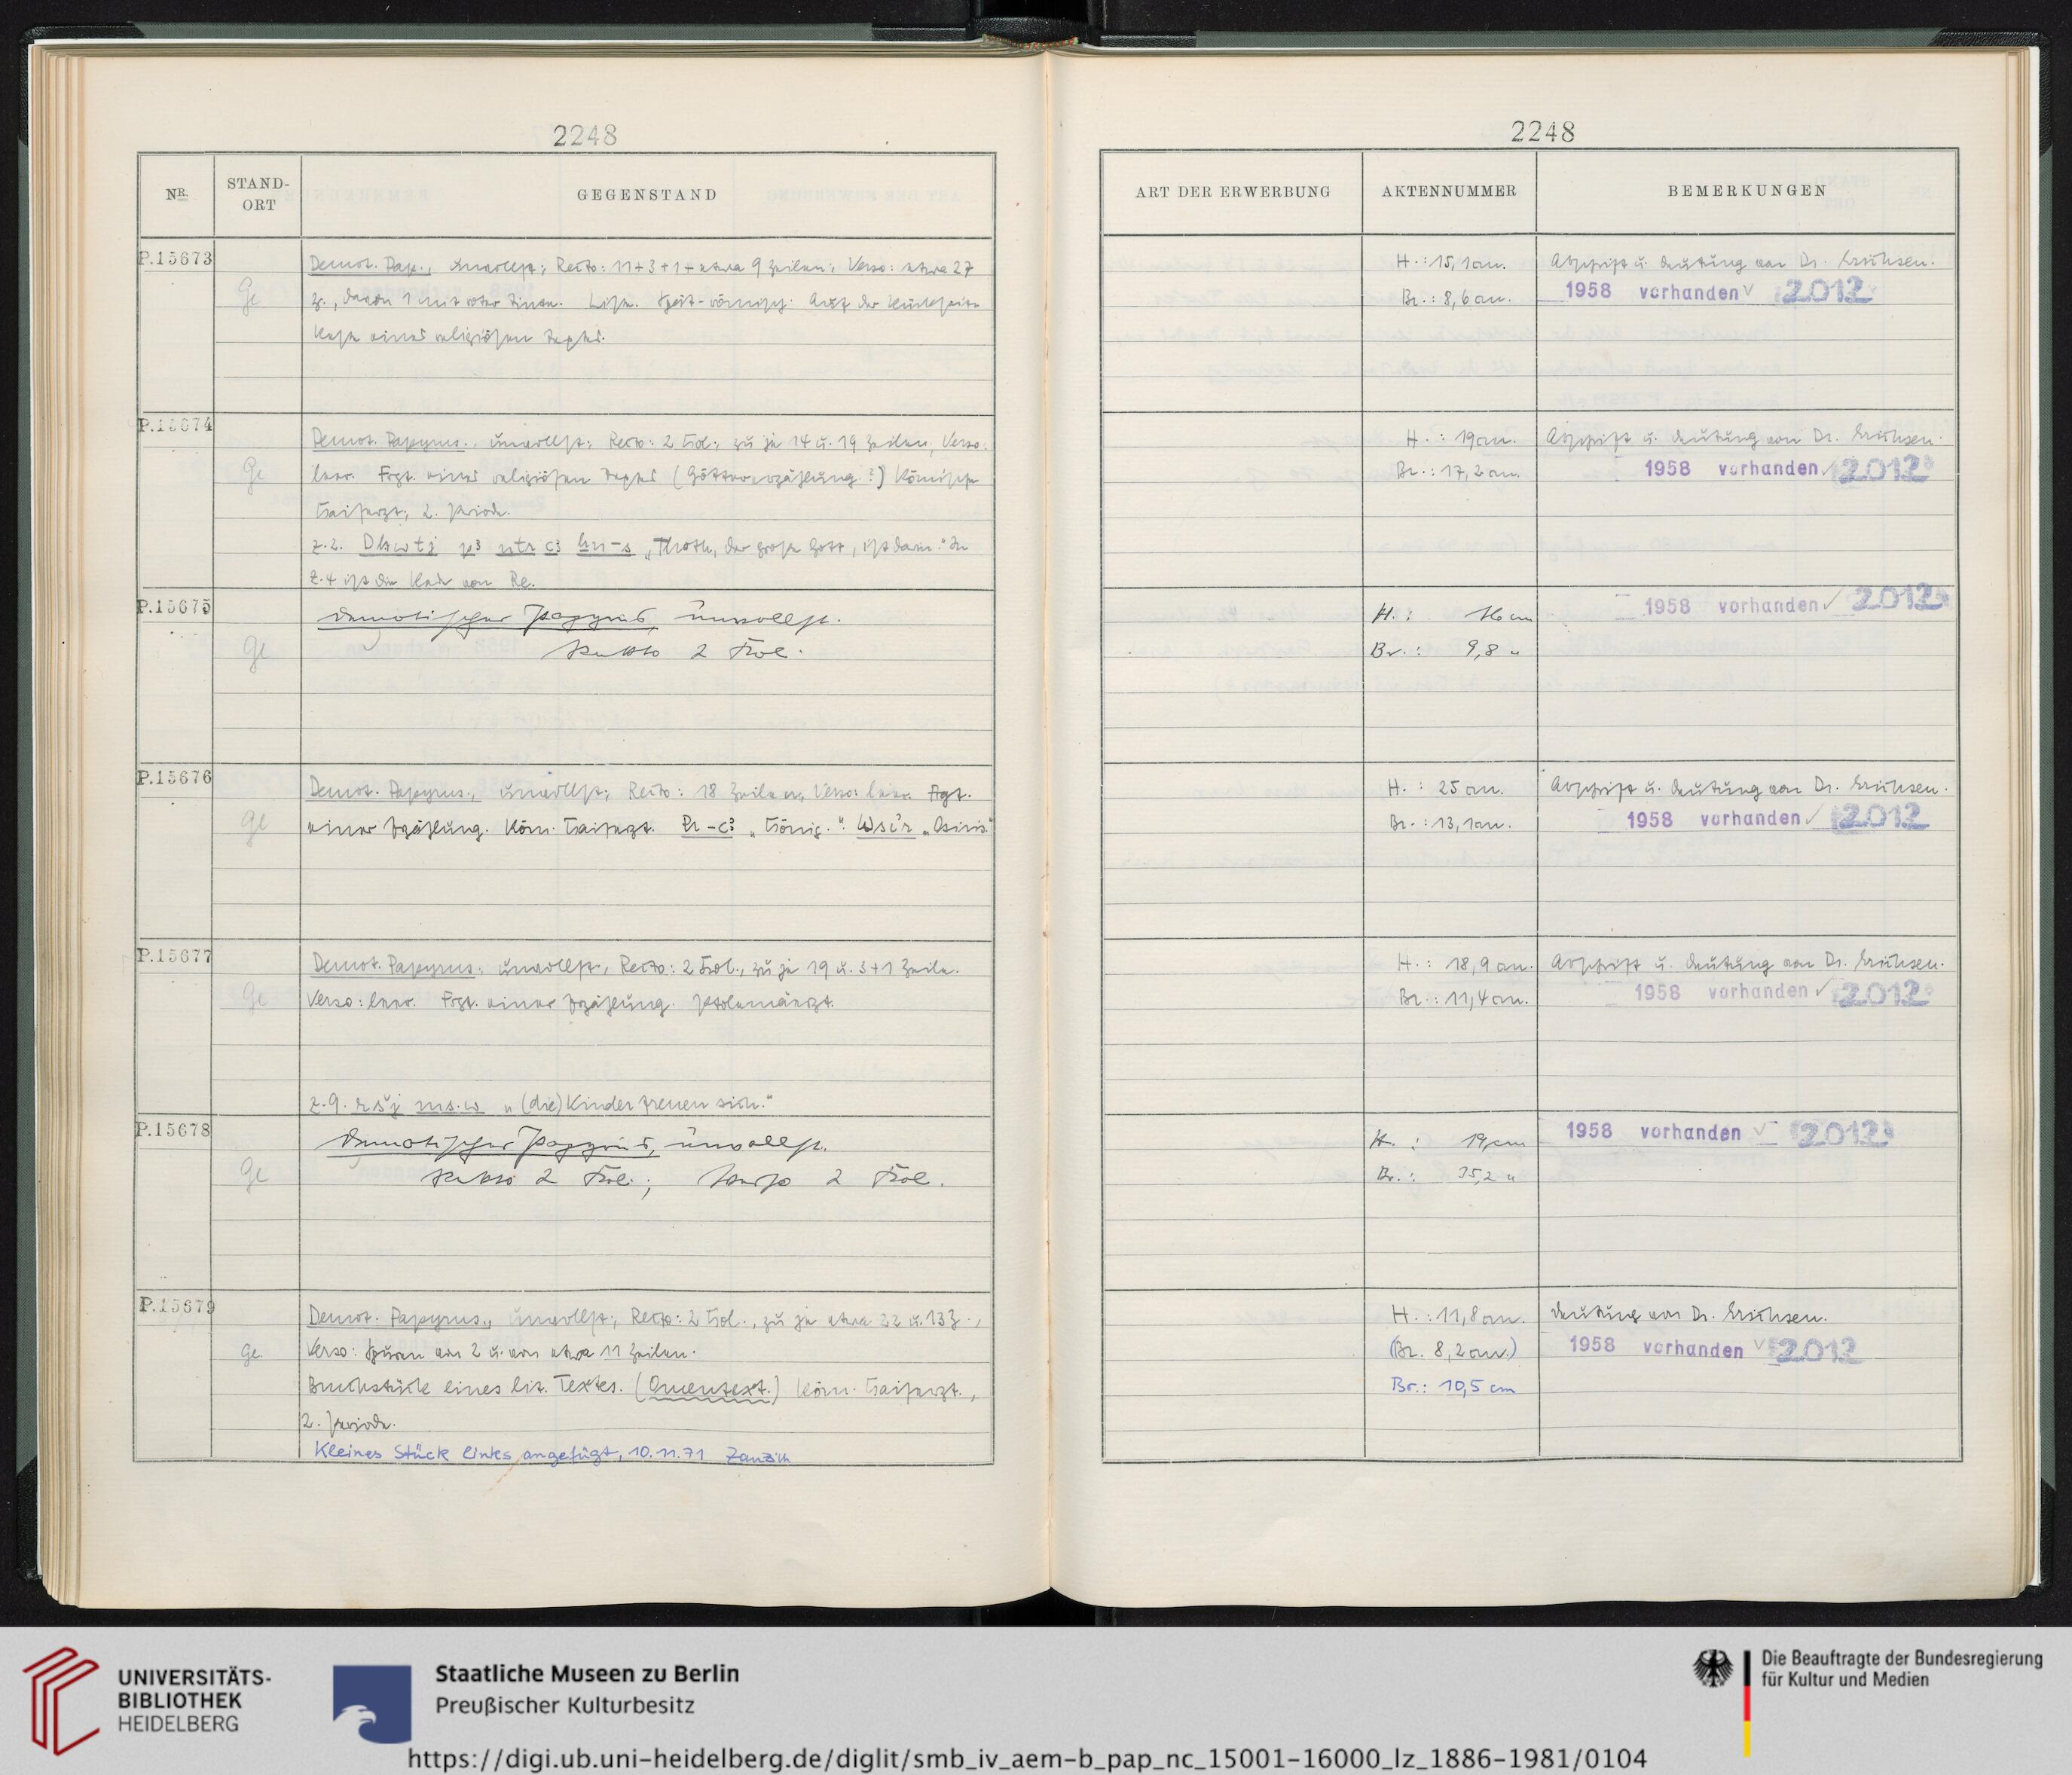 2248
NR.
STAND-ORT
GEGENSTAND
P.15673
Ge
Demot. Pap., unvollst.; Recto: 11+3+1+etwa 9 Zeilen; Verso: etwa 27
Z., davon 1 mit roter Tinte. Liste. Spät-römisch. Auf der Rückseite
Reste eines religiösen Textes.
P.15674
Ge
Demot. Papyrus., unvollst.; Recto: 2 Kol., zu je 14 u. 19 Zeilen, Verso:
leer. Frgt. eines religiösen Textes (Göttererzählung?) Römische
Kaiserzt., 2. Periode.
Z.2. Dḥwtj pꜣ nṯr ꜥꜣ ḫn-s „Thoth, der große Gott, ist darin." In
Z.4 ist die Rede von Re.
P.15675
Ge
Demotischer Papyrus, unvollst.
Rekto 2 Kol.
P.15676
Ge
Demot. Papyrus., unvollst.; Recto: 18 Zeilen, Verso: leer. Frgt.
einer Erzählung. Röm. Kaiserzt. Pr-ꜥꜣ „König.". Wsỉr „Osiris."
P.15677
Ge
Demot. Papyrus., unvollst., Recto: 2 Kol., zu je 19 u. 3+1 Zeile.
Verso: leer. Frgt. einer Erzählung. Ptolemäerzt.
Z.9. ršj ms.w „(die) Kinder freuen sich."
P.15678
Ge
Demotischer Papyrus, unvollst.
Rekto 2 Kol.; Verso 2 Kol.
P.15679
Ge
Demot. Papyrus., unvollst., Recto: 2 Kol., zu je etwa 22 u. 13 Z.,
Verso: Spuren von 2 u. von etwa 11 Zeilen.
Bruchstücke eines lit. Textes. (Omentext.) Röm. Kaiserzt.,
2. Periode.
Kleines Stück links angefügt, 10.11.71 Zauzich
2248
ART DER ERWERBUNG
AKTENNUMMER
BEMERKUNGEN
H.: 15,1 cm. Abschrift u. Deutung von Dr. Erichsen.
Br.: 8,6 cm. 1958 vorhanden 2012
H.: 19 cm. Abschrift u. Deutung von Dr. Erichsen.
Br.: 17,2 cm. 1958 vorhanden 2012
H.: 16 cm 1958 vorhanden 2012
Br.: 9,8 "
H.: 25 cm. Abschrift u. Deutung von Dr. Erichsen.
Br.: 13,1 cm. 1958 vorhanden 2012
H.: 18,9 cm. Abschrift u. Deutung von Dr. Erichsen.
Br.: 11,4 cm. 1958 vorhanden 2012
H.: 19, cm 1958 vorhanden 2012
Br.: 35,2 "
H.: 11,8 cm. Deutung von Dr. Erichsen.
(Br. 8,2 cm.) 1958 vorhanden 2012
Br.: 10,5 cm
UNIVERSITÄTS-
BIBLIOTHEK
HEIDELBERG
Staatliche Museen zu Berlin
Preußischer Kulturbesitz
Die Beauftragte der Bundesregierung
für Kultur und Medien
https://digi.ub.uni-heidelberg.de/diglit/smb_iv_aem-b_pap_nc_15001-16000_lz_1886-1981/0104